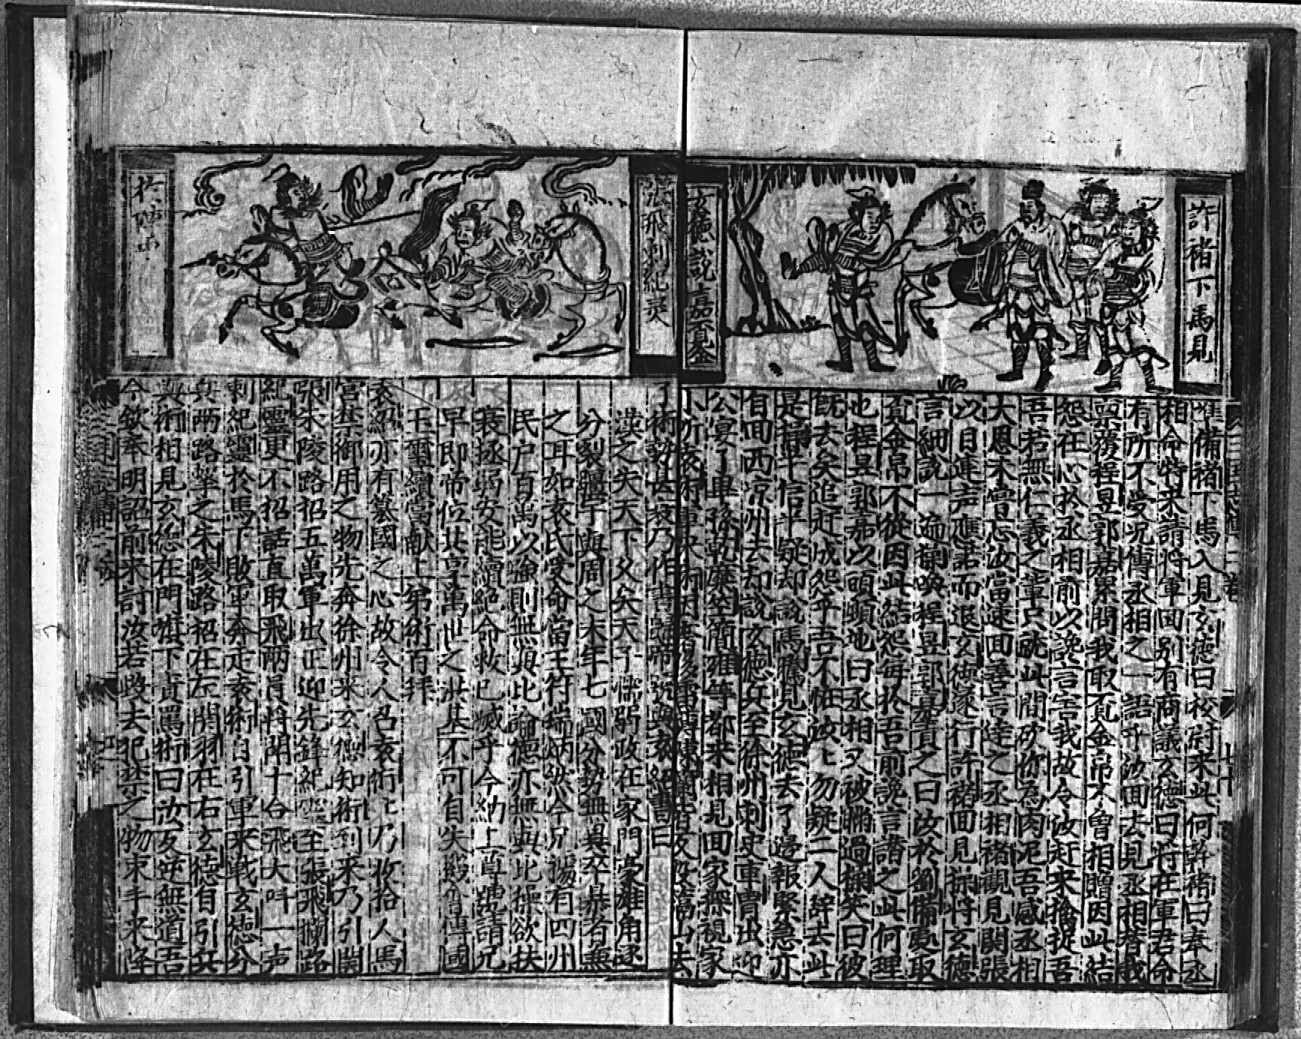 許褚下馬見
玄德說言嘉覔金
備褚下馬入見玄德曰校尉來此何幹褚曰奉丞
相命特來請將軍回别有商議玄德曰將在軍君命
有所不受况傳丞相之一語乎汝回去見丞相替我
禀覆程昱郭嘉累問我取覔金帛不曾相贈因此結
怨在心於丞相前以讒言害我故令汝赶來擒捉吾
吾若無仁義之輩只就此間砍你為肉泥吾感丞相
大恩未曾忘汝當速回善言達之丞相褚觀見関張
以目連声應諾而退玄德遂行許褚回見操將玄德
言細說一遍操喚程昱郭嘉責之曰汝於劉備處取
覔金帛不從因此結怨每於吾前讒言譖之此何理
也程昱郭嘉以頭頓地曰丞相又被瞞過操笑曰彼
既去矣追赶成怨乎吾不怪汝上勿疑二人辞去此
是操半信半疑却說馬騰見玄德去了邊報緊急亦
自回西凉州去却說玄德兵至徐州刺史車胄出迎
公宴了畢孫乾糜竺簡雍等都來相見回家探視家
小
張飛刺紀灵
了術勢甚衰乃作書歸帝號與袁紹書曰
漢之失天下久矣天子懦弱政在家門豪雄角逐
分裂疆宇與周之末年七國分勢無異卒鼎者兼
之耳如袁氏受命當王符瑞炳然今兄擁有四州
民户百萬以強則無與比論德亦無與比操欲扶
衰拯弱安能續絕命救已滅乎今納上尊號請兄
早即帝位共享萬世之洪基不可自失毀傳國
玉璽續當献上弟術百拜
袁紹亦有篡國之心故令人召袁術上乃收拾人馬
宮禁御用之物先奔徐州來玄德知術到來乃引関
張朱陵路招五萬軍出正迎先鋒紀灵至張飛攔路
紀靈更不招話直取飛兩員將閗十合飛大叫一声
刺紀靈於馬下敗軍奔走袁術自引軍來戰玄德分
兵兩路擊之朱陵路招在左関羽在右玄德自引兵
與術相見玄德在門旗下責罵術曰汝反逆無道吾
今欽奉明詔前來討汝若將去犯禁之物束手來降